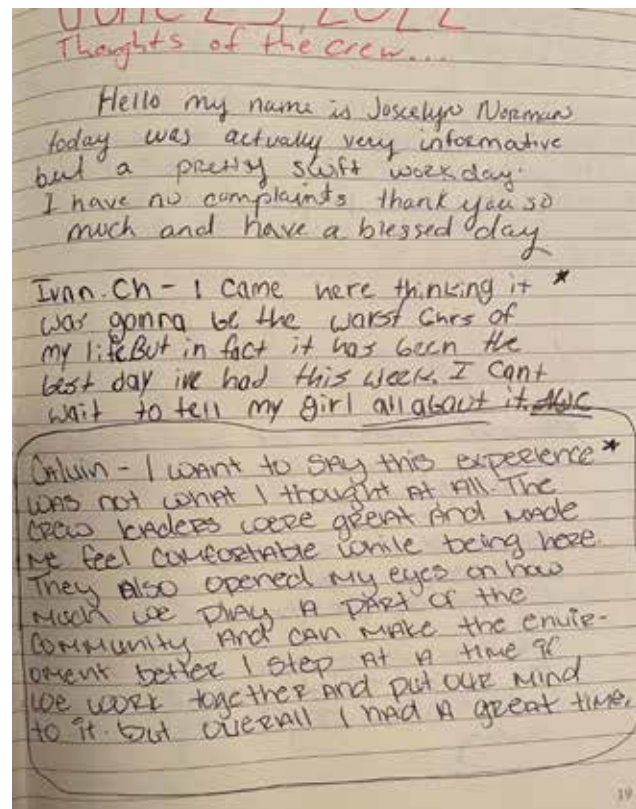 June 23, 2022
Thoughts of the crew....
Hello my name is Joscelyn Norman
today was actually very informative
but a pretty swift workday.
I have no complaints thank you so
much and have a blessed day
Ivan. Ch - I came here thinking it *
was gonna be the warst 6hrs of
my life But in fact it has been the
best day ive had this week. I cant
wait to tell my girl all about it.
Calvin - I want to say this experience *
was not what I thought at all. The
crew leaders were great and made
me feel comfortable while being here.
They also opened my eyes on how
much we play a part of the
community and can make the envir-
oment better 1 step at a time if
we work together and put our mind
to it. but overall I had a great time.
19